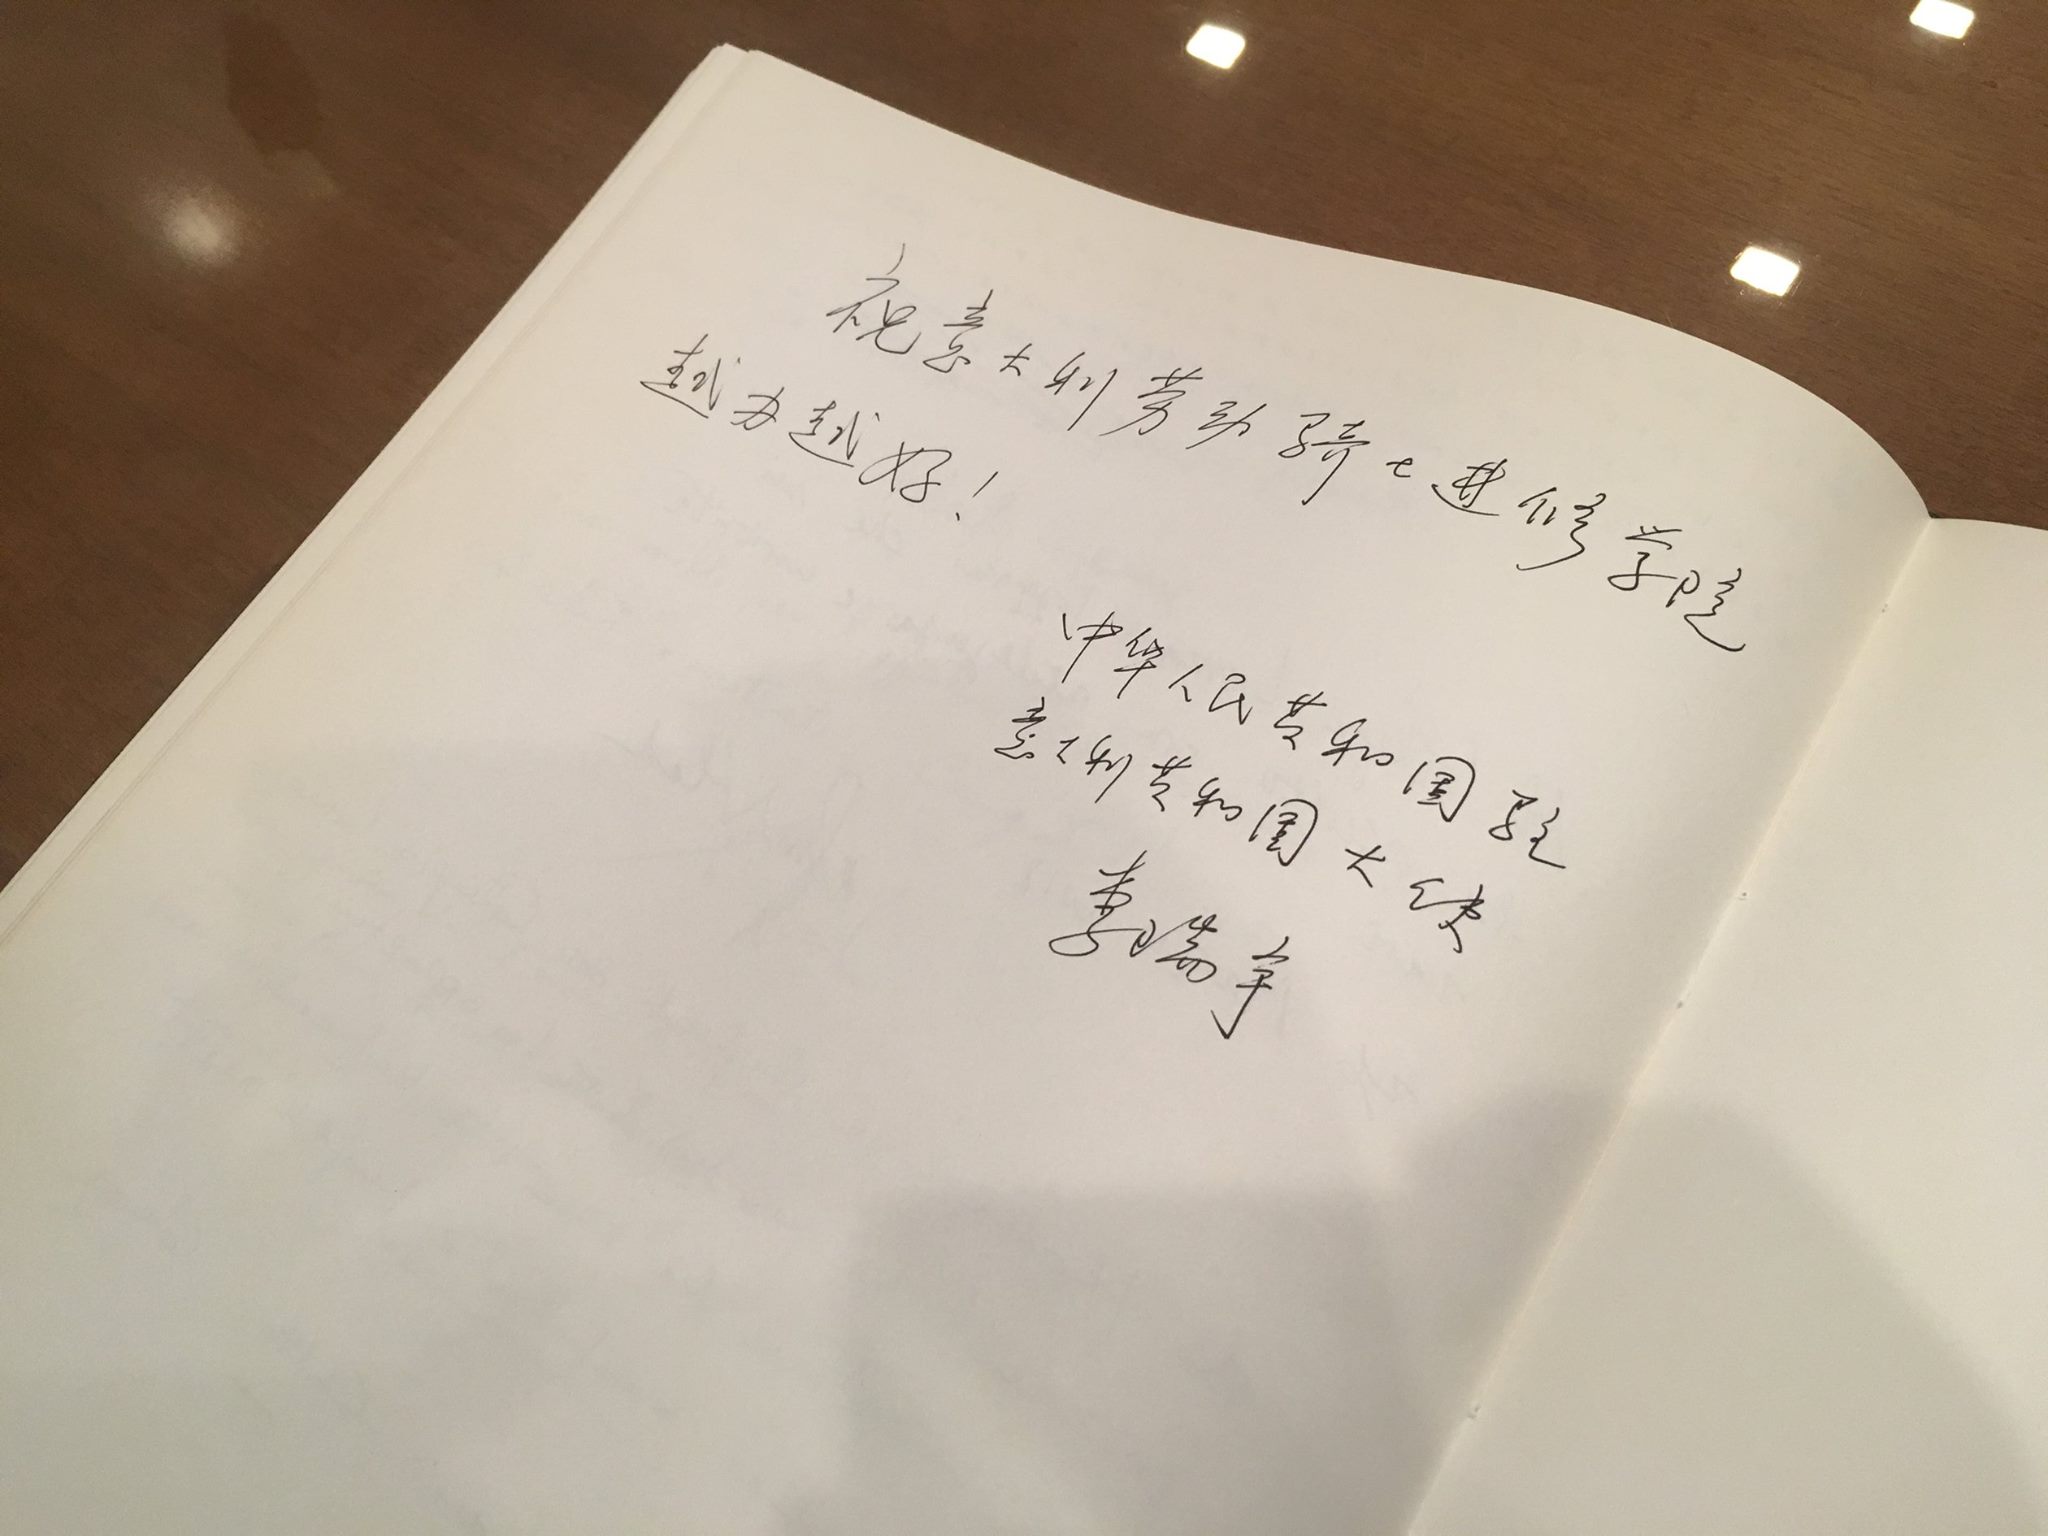 祝意大利劳动骑士进修学院
越办越好！
中华人民共和国驻
意大利共和国大使
李瑞宇